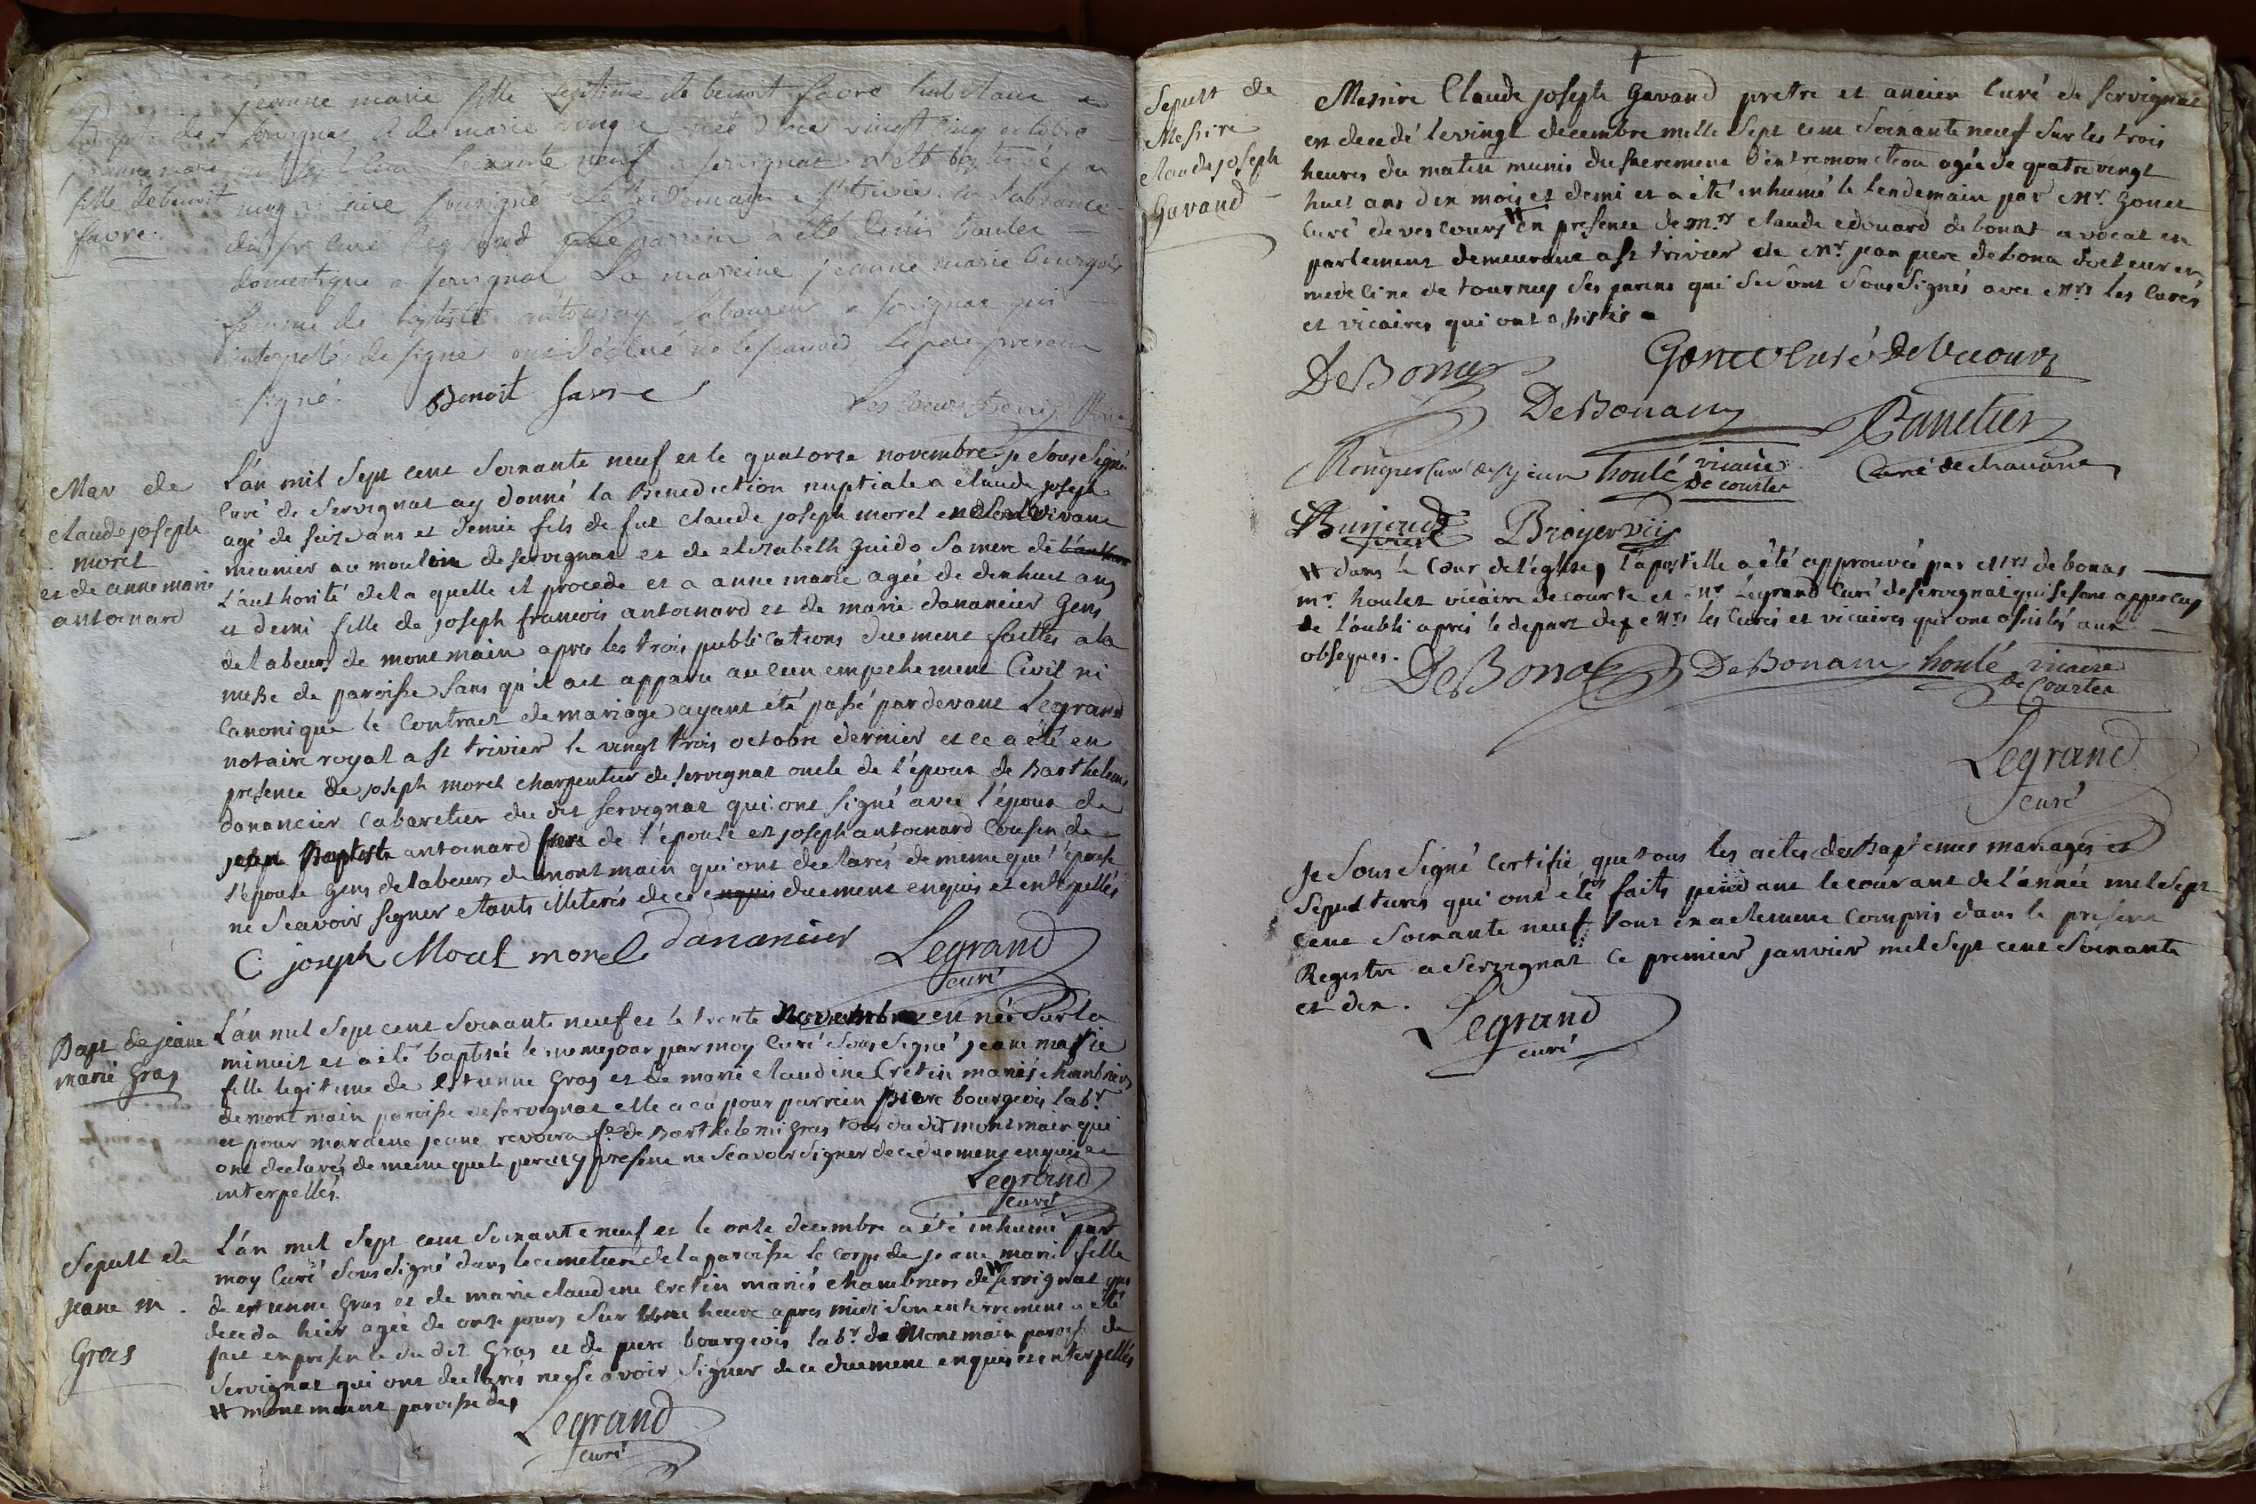 jeanne marie fille legitime de benoit favre habitant a
servignat & de marie
soixante neuf a servignat
fille de benoit
favre.
curé soussigné Le lendemain
du Sr curé Legrand Le parrain a été denis
domestique a servignat La marreine jeanne marie bourgeois
femme de laboureur a servignat qui
interpellés de signer ont déclaré ne le sçavoir le pere present
a signé.
Benoit favre
Mar de
claude joseph
morel
et de anne marie
antoinard
L'an mil sept cent soixante neuf et le quatorze novembre je sous signé
curé de servignat ay donné la Benediction nuptiale a claude joseph
agé de seize ans et demie fils de fut claude joseph morel en son vivant
meunier au moulin de servignat et de elizabeth guido sa mere de
l'authorité de la quelle il procede et a anne marie agée de dix huit ans
et demi fille de joseph francois antoinard et de marie danancier Gens
de labeur de montmain apres les trois publications duement faittes a la
messe de paroisse sans qu'il ait apparu aucun empechement Civil ni
Canonique le Contract de mariage ayant été passé pardevant Legrand
notaire royal a st trivier le vingt trois octobre dernier et ce a été en
presence de joseph morel charpentier de servignat oncle de l'epoux de Barthelemi
danancier Cabaretier du dit servignat qui ont signé avec l'époux de
Baptiste antoinard frere de l'épouse et joseph antoinard Cousin de
l'épouse gens de labeur de montmain qui ont declarés de meme que l'épouse
ne Scavoir signer etants illiterés de ce enquis duement enquis et interpellés
C. joseph Morel morel danancier Legrand
curé
Bapt de jeane
marie Gras
L'an mil sept cent soixante neuf et le trente Novembre est née sur la
minuit et a été baptisée le meme jour par moy Curé sous signé jeane marie
fille legitime de estienne Gras et de marie claudine Cretin mariés chambriers
de montmain paroisse de servignat elle a eu pour parrein pierre bourgeois labr.
et pour mareine jeane revoira fe. de Barthelemi Gras tous du dit montmain qui
ont declarés de meme que le pere icy present ne Scavoir signer de ce duement enquis et
interpellés.
Legrand
curé
Sepult de
jeane m.
Gras
L'an mil sept cent soixante neuf et le onze decembre a été inhumé par
moy Curé sous signé dans le cimetiere de la paroisse le corps de jeane marie fille
de estienne Gras et de marie claudine cretin mariés chambriers de # servignat qui
deceda hier agée de onze jours sur une heure apres midi son enterrement a été
fait en presence du dit Gras et de piere bourgeois labr. de Montmain paroisse de
Servignat qui ont declarés ne Scavoir signer de ce duement enquis et interpellés
# montmain paroisse de
Legrand
curé
Sepult de
Messire
claude joseph
Gavand
Messire Claude joseph Gavand pretre et ancien Curé de servignat
est decedé le vingt decembre mille sept cent soixante neuf sur les trois
heures du matin munis du sacrement d'extremonction agée de quatre vingt
huit ans dix mois et demi et a été inhumé le lendemain par Mr. Gonet
Curé de vescours # en presence de Mr. claude edouard de bonat avocat en
parlement demeurant a st trivier de Mr. jean piere de bona docteur en
medecine de tournus ses parens qui se sont sous signés avec Mrs les Curés
et vicaires qui ont assistés
De Bonat Gonet Curé de Vecours
DeBonam Panetier
curé de st jean houlé vicaire de courtes Curé de chavane
Broyer vic
# dans le Cœur de l'eglise, l'apostille a été approuvée par Mrs de bonas
mr. houlet vicaire de courte et mr. Legrand Curé de servignat qui se sont appercus
de l'oubli apres le depart de Mrs les Curés et vicaires qui ont assistés aux
obseques.
De Bonat DeBonam houlé vicaire
de Courtes
Legrand
curé
Je sous signé Certifie que tous les actes de Baptemes mariages et
Sepultures qui ont été faits pendant le courant de l'année mil sept
cent soixante neuf sont exactement compris dans le présent
Registre a Servignat ce premier janvier mil sept cent soixante
et dix.
Legrand
curé